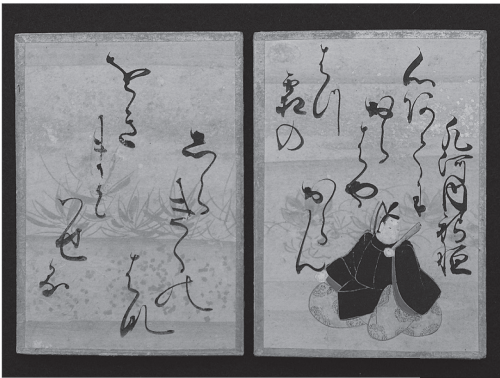 凡河内躬恒
心あてに
をらはや
おらん
はつ
霜の
をき
まとは
せる
しら
きくの
はな